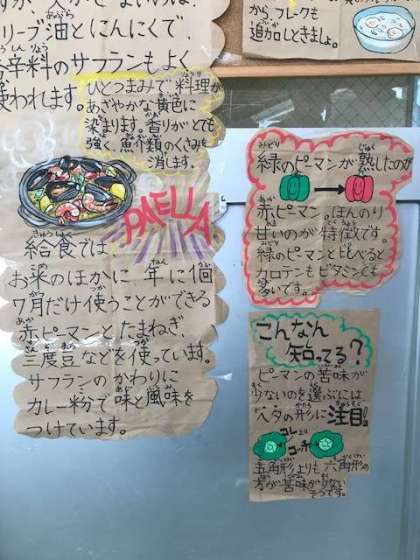 リーブ油とにんにくで
辛料のサフランもよく
使われます。
ひとつまみで、料理が
あざやかな黄色に
染まります。香りがとても
強く、魚介類のくさみを
消します。
PAELLA
給食では、
お米のほかに 年に1回
7月だけ使うことができる
赤ピーマンとたまねぎ、
三度豆などを使っています。
サフランのかわりに
カレー粉で味と風味を
つけています。
から、フレークも
追加しときましょ。
緑のピーマンが熟したのが
赤ピーマン。ほんのり
甘いのが特徴です。
緑のピーマンと比べると
カロテンもビタミンも
多いです。
こんなん
知ってる？
ピーマンの苦味が
少ないのを選ぶには
ヘタの形に注目!!
五角形よりも六角形の
方が苦味が少ない
そうです。